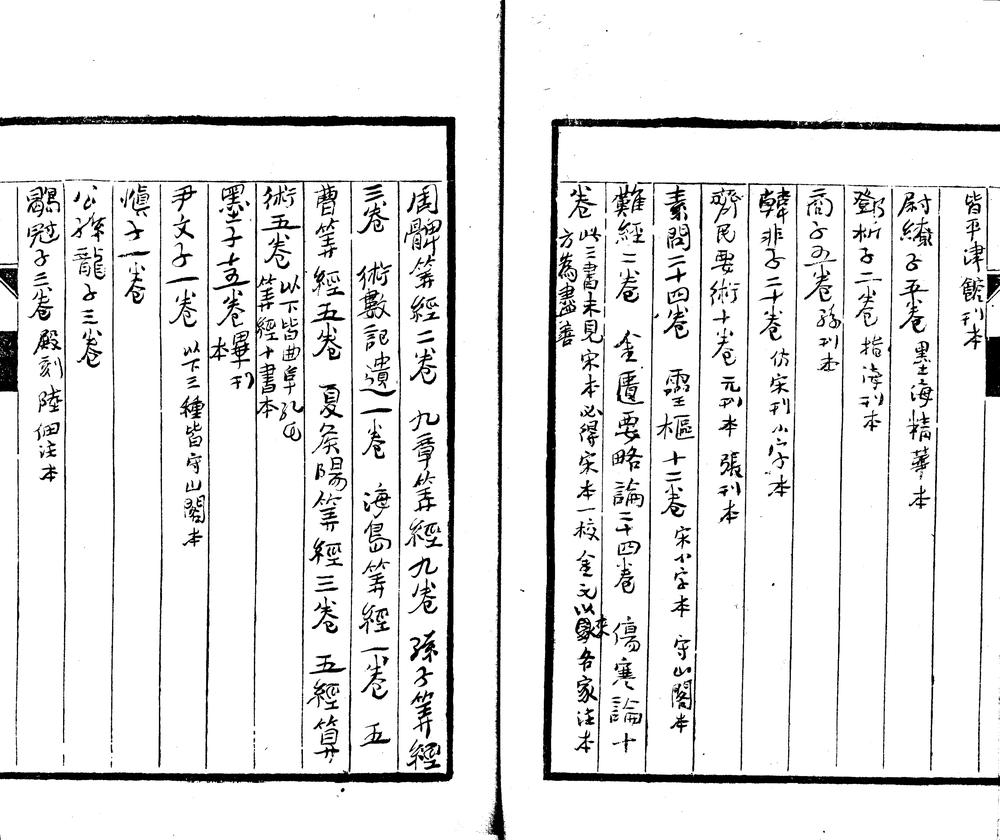 皆平津館刊本
尉繚子五卷 墨海精華本
鄧析子二卷 指海刊本
商子五卷 孫刊本
韓非子二十卷 仿宋刊小字本
齊民要術十卷 元刊本 張刊本
素問二十四卷 靈樞十二卷 宋小字本 守山閣本
難經二卷 金匱要略論二十四卷 傷寒論十
卷 此三書未見宋本必得宋本一校金元以來各家注本
方為盡善
周髀筭經二卷 九章筭經九卷 孫子筭經
三卷 術數記遺一卷 海島筭經一卷 五
曹筭經五卷 夏侯陽筭經三卷 五經算
術五卷 以下皆曲阜孔氏
筭經十書本
墨子十五卷 畢刊
本
尹文子一卷 以下三種皆守山閣本
愼子一卷
公孫龍子三卷
鶡冠子三卷 殿刻陸佃注本